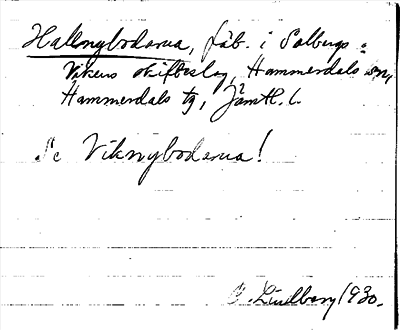 Hallnybodarna, fäb. i Solbergs-
Vikens skifteslag, Hammerdals sn,
Hammerdals tg, Jämtl. l.
Se Viknybodarna!
C. Lindberg 1930.